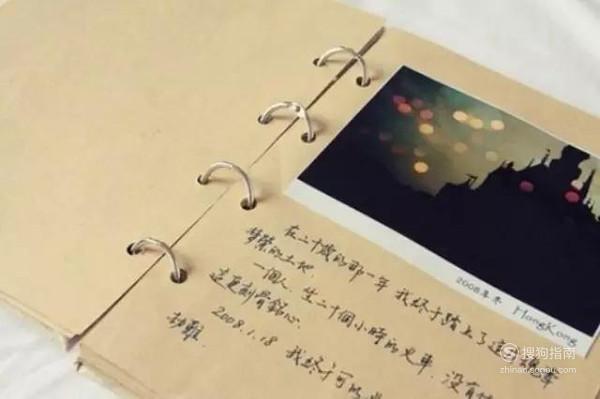 2008年冬 HongKong
在二十歲的那一年 我終于踏上了這個
夢縈的土地.
一個人. 坐二十個小時的火車. 沒有
這更刻骨銘心.
2008.1.18
我終于可以
搜狗指南
zhinan.sogou.com